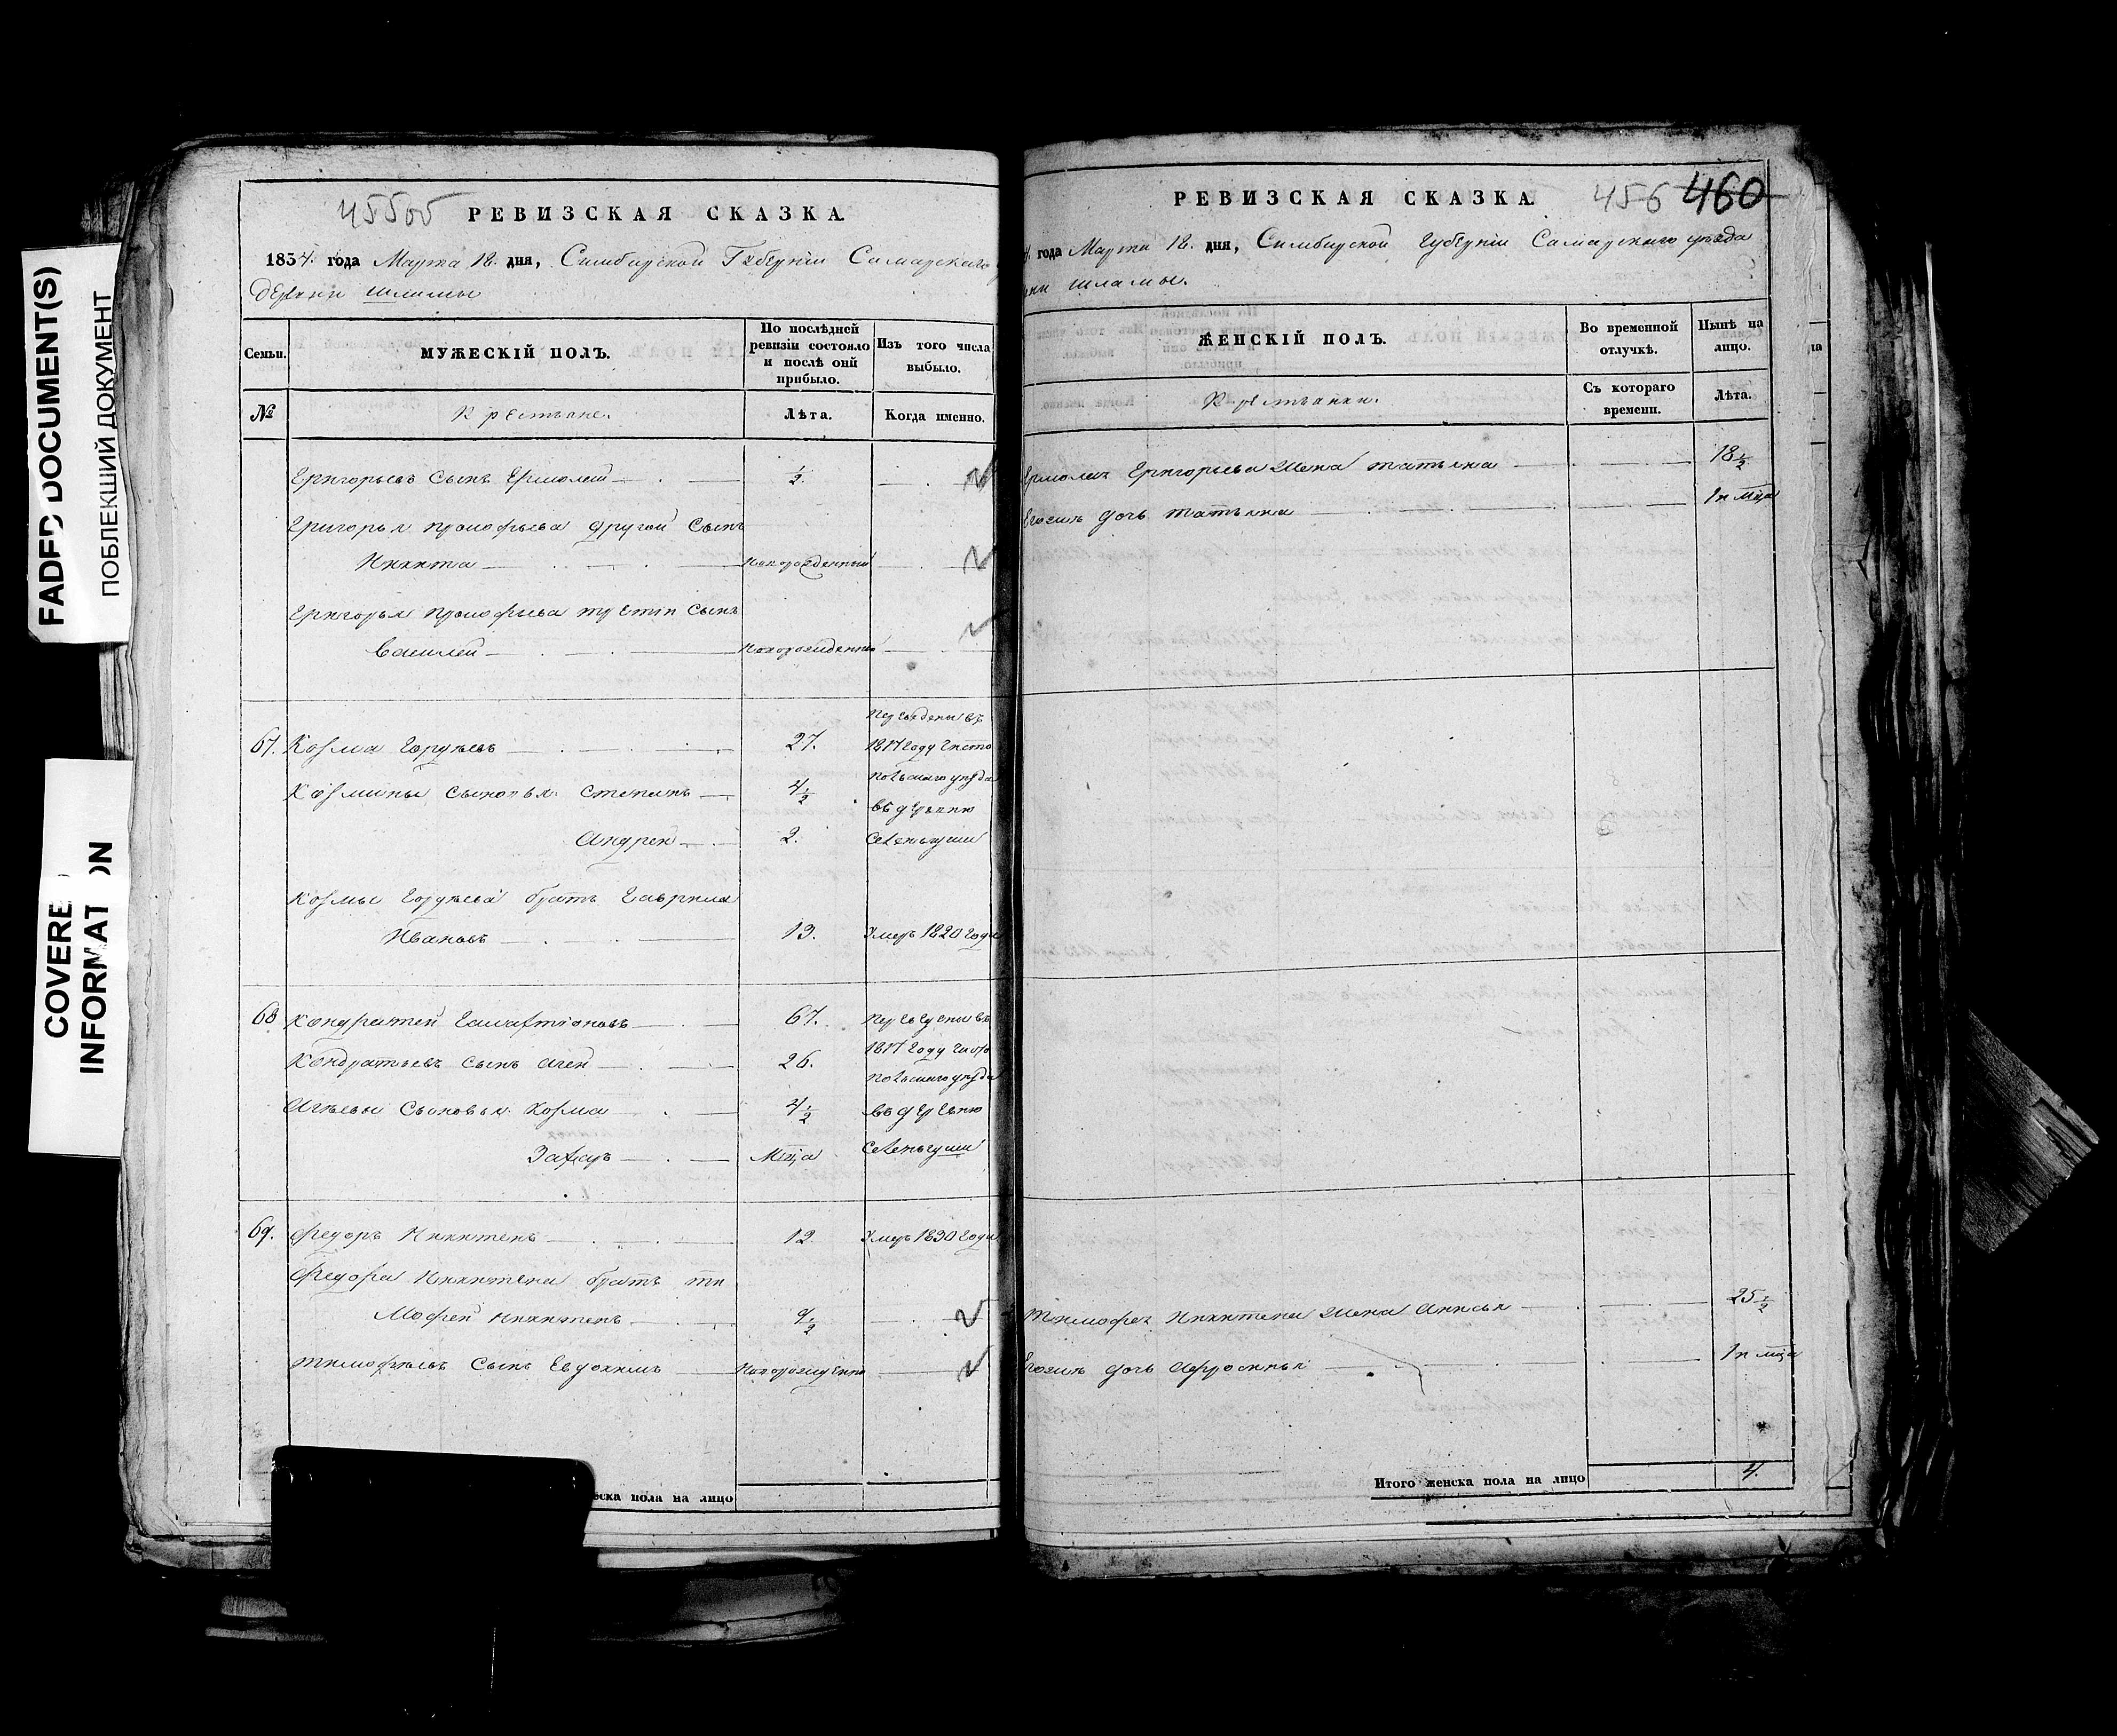 FADED DOCUMENT(S)
ПОБЛЕКШИЙ ДОКУМЕНТ
COVERE
INFORMAT ON
455об
РЕВИЗСКАЯ СКАЗКА.
1834. года Марта 18. дня, Симбирской Губернiи Самарскаго
деревни Шламы
Семьи.
МУЖЕСКIЙ ПОЛЪ.
По послѣдней
ревизiи состояло
и послѣ оной
прибыло.
Изъ того числа
выбыло.
№
Крестьяне.
Лѣта.
Когда именно.
Григорьевъ сынъ Ермолей ½
Григорья Прокофьева другой сынъ
Никита Новорожденный
Григорья Прокофьева третiй сынъ
Василей Новорожденный
67. Козма 27.
Переведены въ
1817 году Чисто
польскаго уѣзда
въ деревню
Козмины сыновья Степанъ 4½
Андрей 2.
Козмы братъ Гаврила
Ивановъ 13. Умеръ 1820 года
68 Кондратей Галактiоновъ 67.
Переведены въ
1817 году Чисто
польскаго уѣзда
въ деревню
Кондратьевъ сынъ Агей 26.
Агѣевы сыновья Козма 4½
Захаръ Мца
69. Федоръ Никитинъ 12 Умеръ 1830 года
Федора Никитина братъ Ти
мофей Никитинъ 9½
Тимофѣевъ сынъ Евдокимъ Новорожденны
еска пола на лицо
РЕВИЗСКАЯ СКАЗКА.
456 460
4. года Марта 18. дня, Симбирской Губернiи Самарскаго уѣзда
вни Шламы.
ЖЕНСКIЙ ПОЛЪ.
Во временной
отлучкѣ.
Нынѣ на
лицо.
Крестьянки.
Съ котораго
времени.
Лѣта.
Ермолая Григорьева жена Татьяна 18½
Егожъ дочь Татьяна 1н мца
Тимофея Никитина жена Анисья 25½
Егожъ дочь Афросинья 1н мца
Итого женска пола на лицо 4.